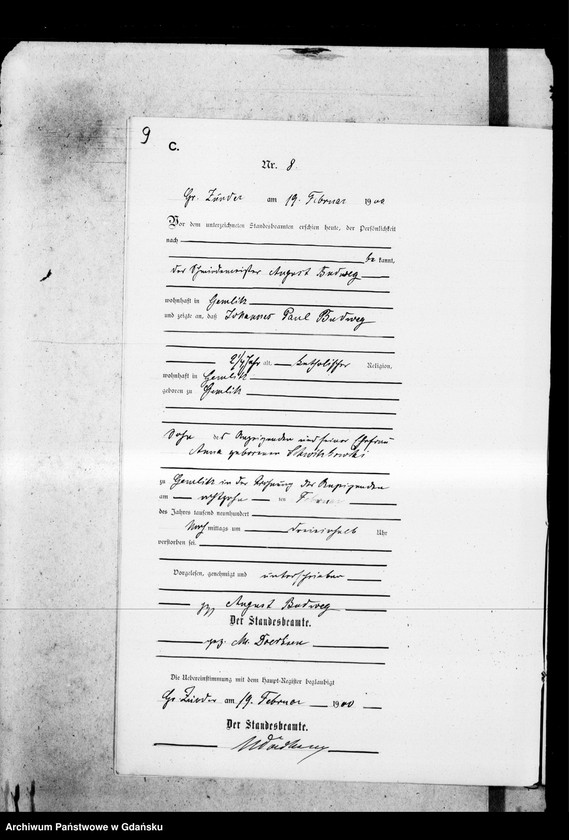 9
C.
Nr. 8.
Gr. Zünder am 19. Februar 1900
Vor dem unterzeichneten Standesbeamten erschien heute, der Persönlichkeit
nach
be kannt,
der Schmiedemeister August Budweg
wohnhaft in Gemlitz
und zeigte an, daß Johannes Paul Budweg
2 1/4 Jahr alt, katholischer Religion,
wohnhaft in Gemlitz
geboren zu Gemlitz
Sohn des Anzeigenden und seiner Ehefrau
Anna geborenen
zu Gemlitz in der Wohnung des Anzeigenden
am achtzehn ten Februar
des Jahres tausend neunhundert
Nach mittags um dreieinhalb Uhr
verstorben sei.
Vorgelesen, genehmigt und unterschrieben
gez. August Budweg
Der Standesbeamte.
gez. M. Doerksen
Die Uebereinstimmung mit dem Haupt-Register beglaubigt
Gr. Zünder am 19. Februar 1900
Der Standesbeamte.
Archiwum Państwowe w Gdańsku